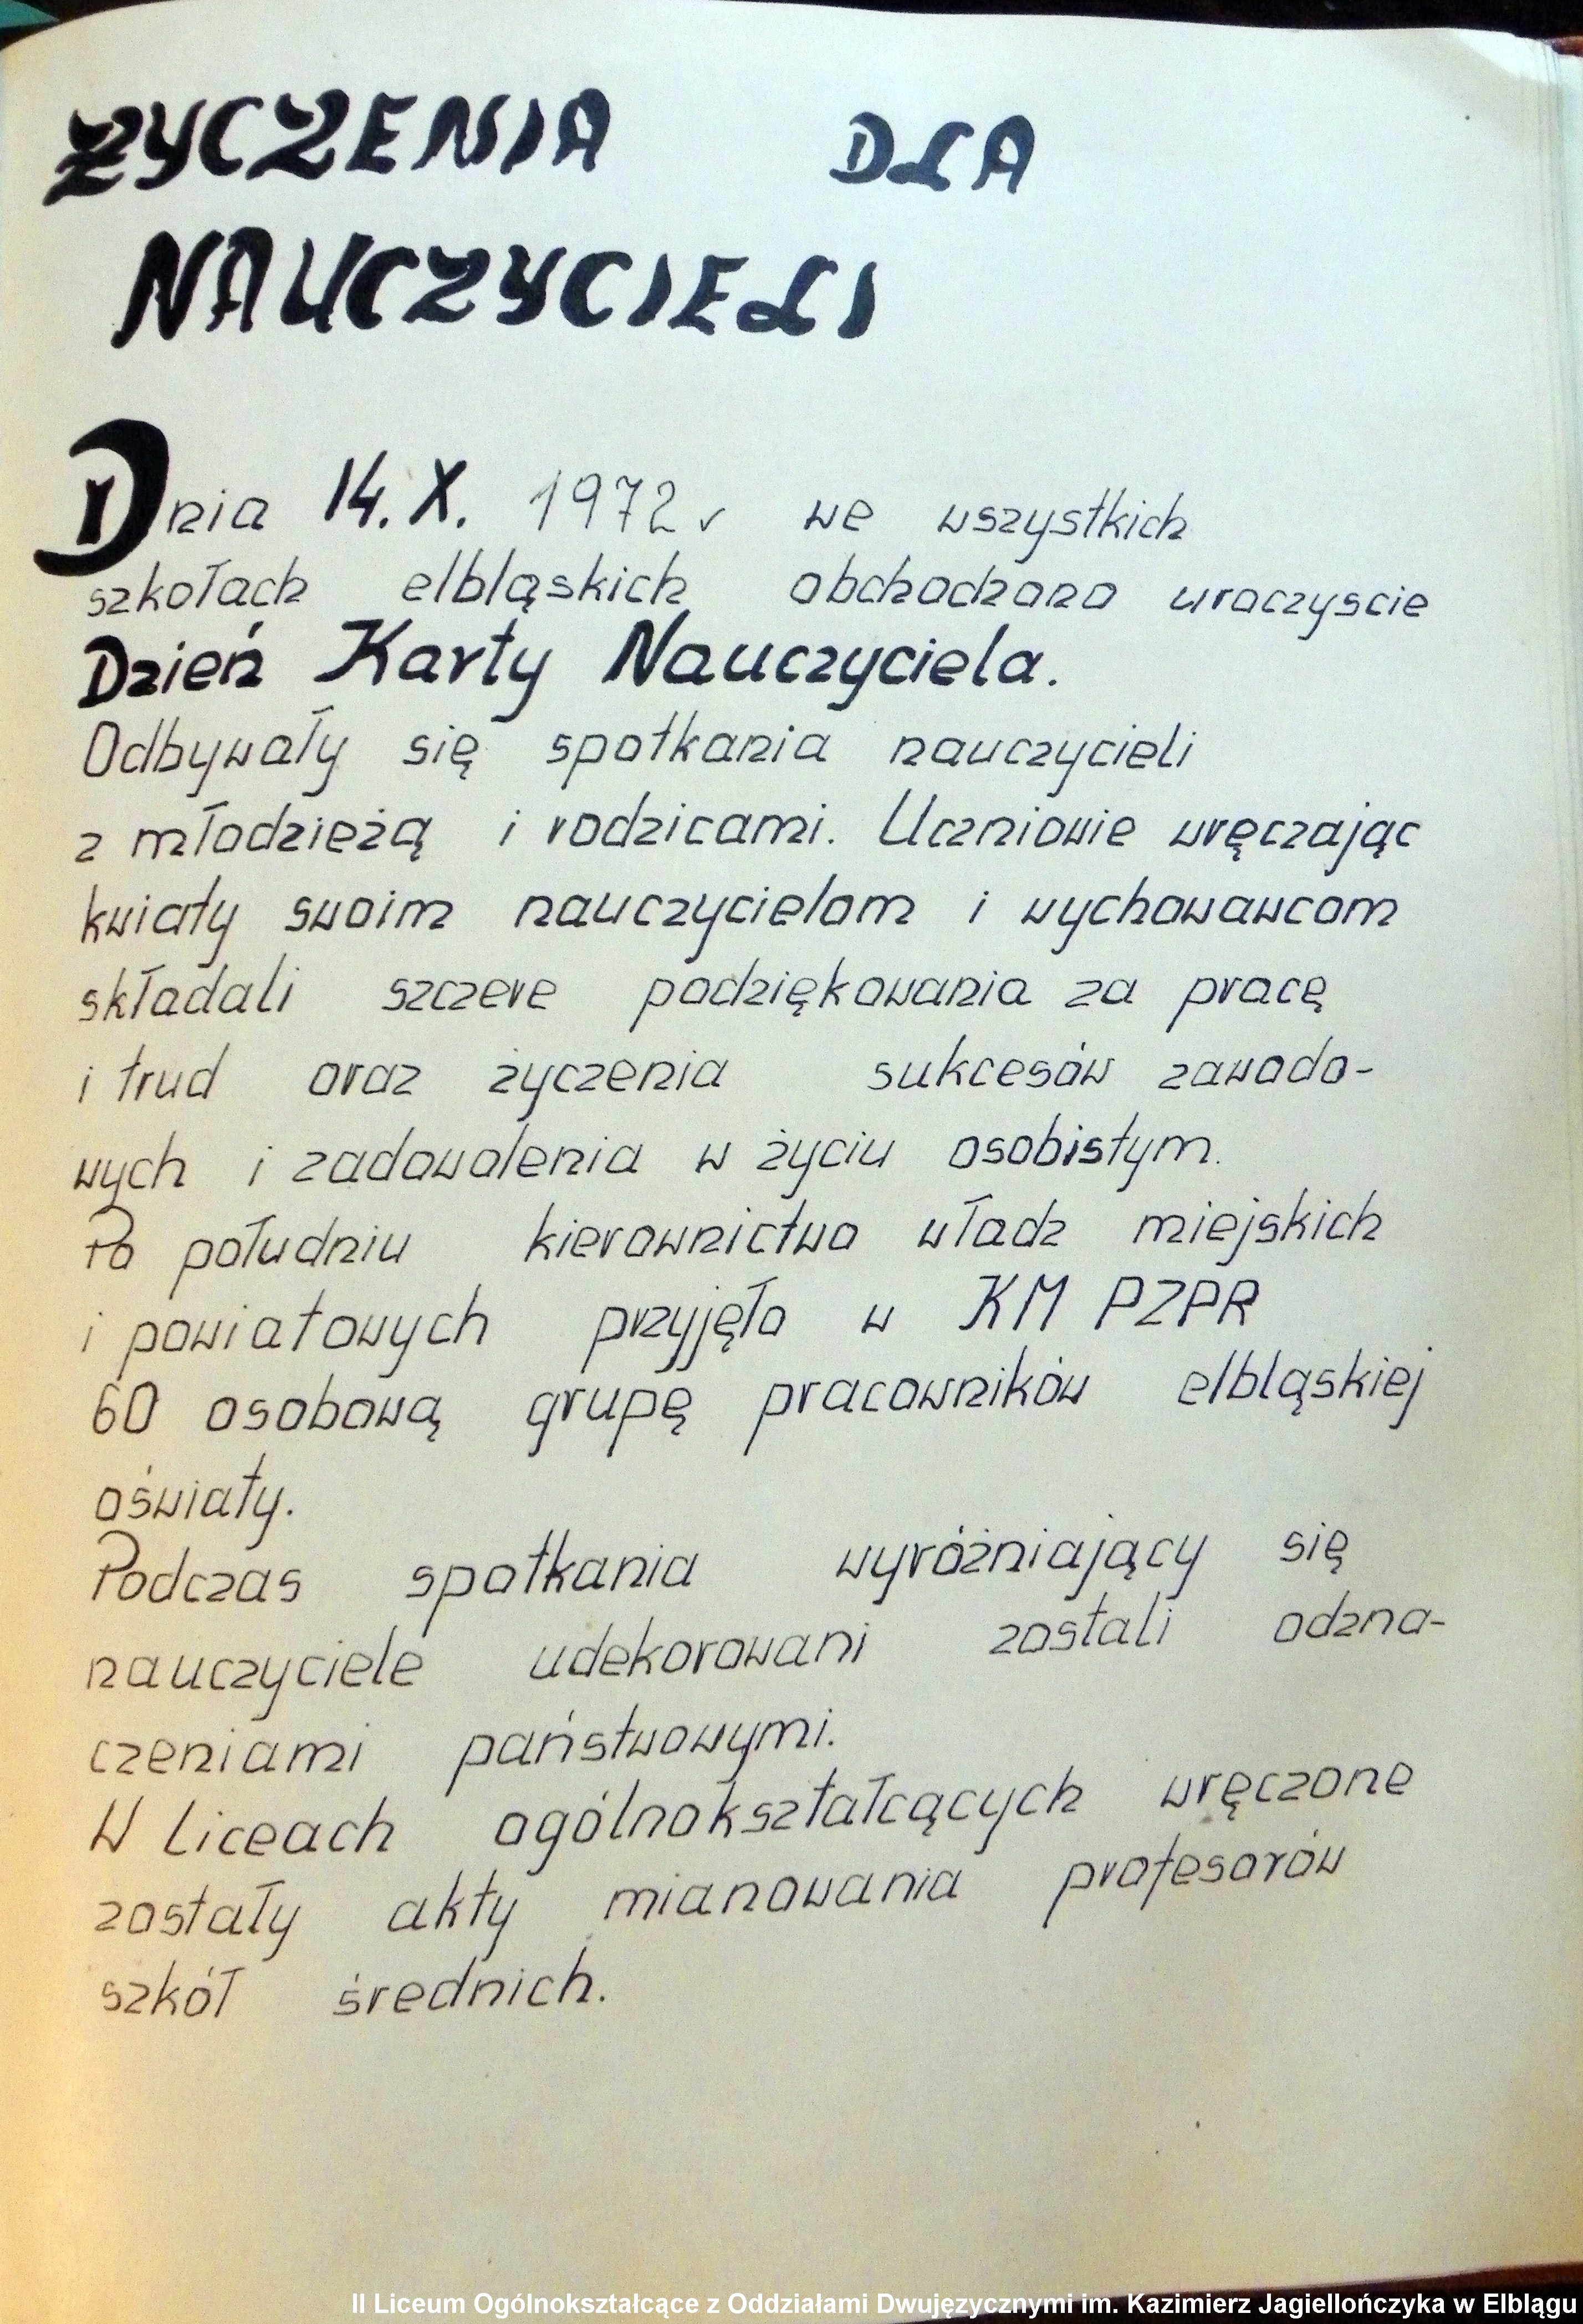 ŻYCZENIA DLA
NAUCZYCIELI
Dnia 14.X. 1972 r we wszystkich
szkołach elbląskich obchodzono uroczyscie
Dzień Karty Nauczyciela.
Odbywały się spotkania nauczycieli
z młodzieżą i rodzicami. Uczniowie wręczając
kwiaty swoim nauczycielom i wychowawcom
składali szczere podziękowania za pracę
i trud oraz życzenia sukcesów zawodo-
wych i zadowolenia w życiu osobistym.
Po południu kierownictwo władz miejskich
i powiatowych przyjęło w KM PZPR
60 osobową grupę pracowników elbląskiej
oświaty.
Podczas spotkania wyróżniający się
nauczyciele udekorowani zostali odzna-
czeniami państwowymi.
W Liceach ogólnokształcących wręczone
zostały akty mianowania profesorów
szkół średnich.
II Liceum Ogólnokształcące z Oddziałami Dwujęzycznymi im. Kazimierz Jagiellończyka w Elblągu